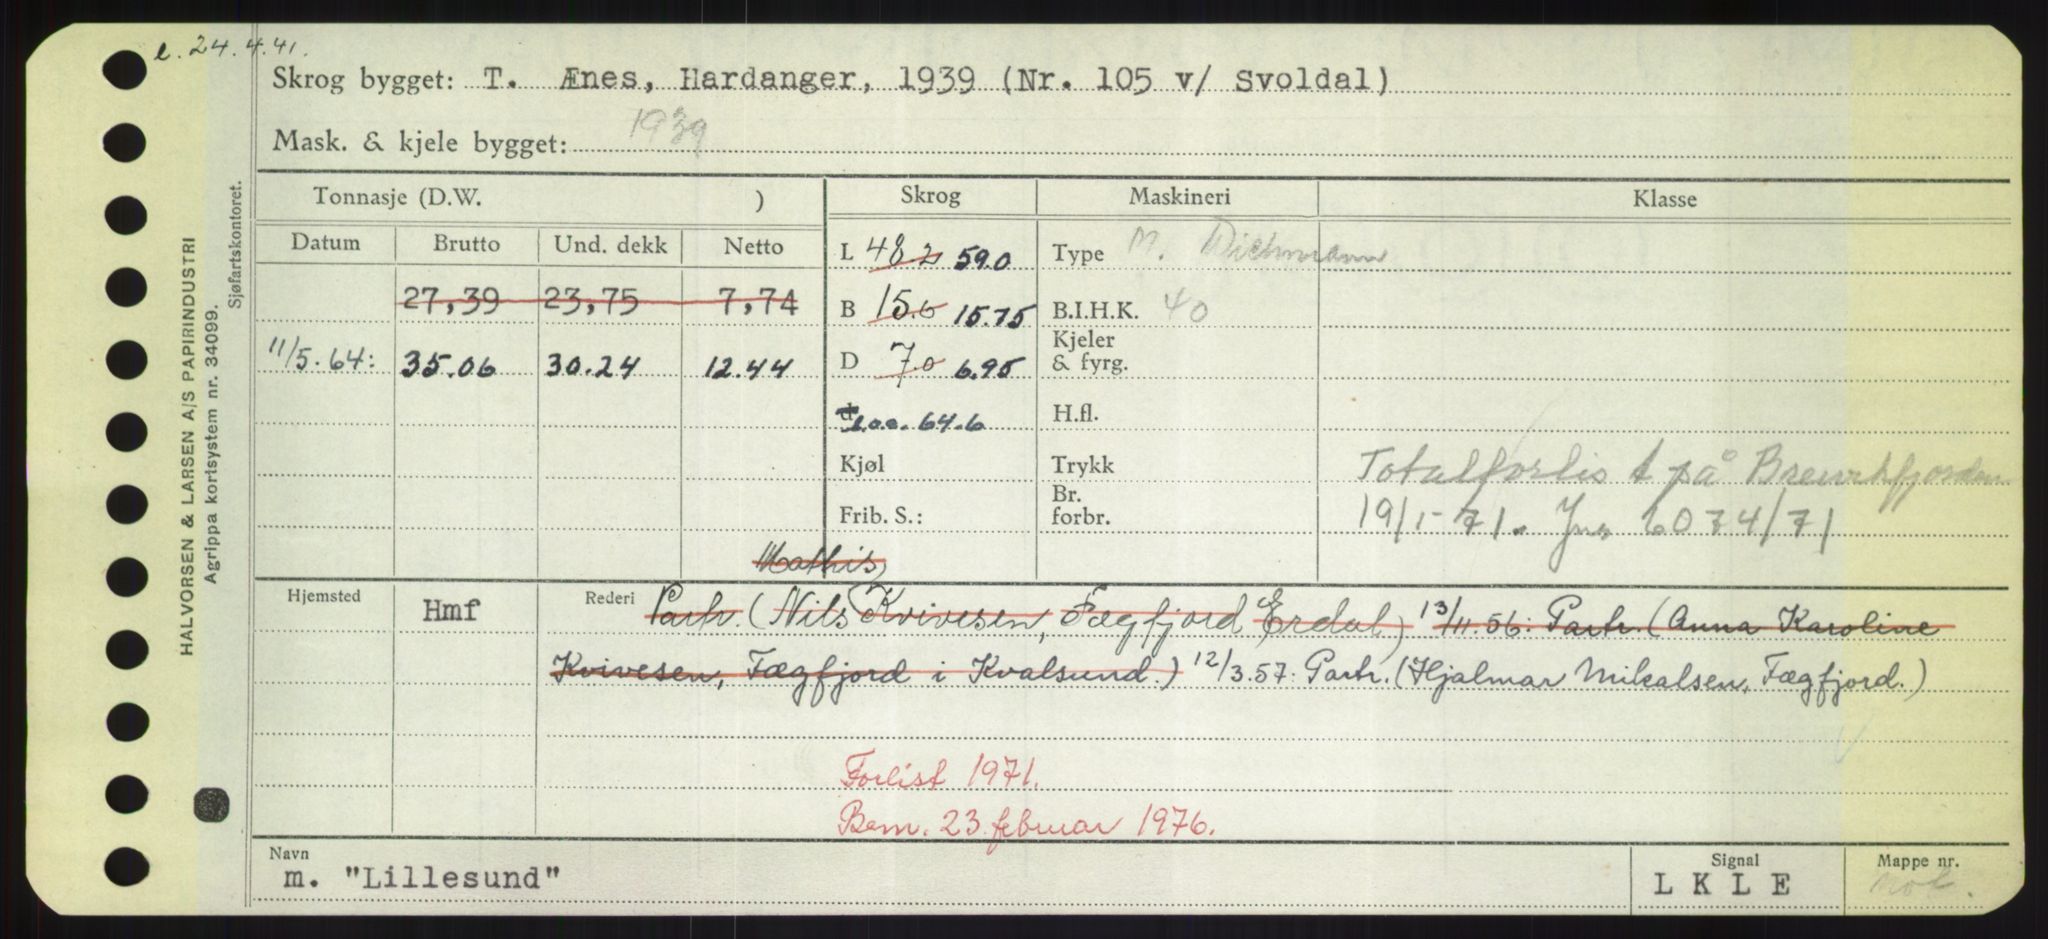 e. 24.4.41.
Skrog bygget: T. Ænes, Hardanger, 1939 (Nr. 105 v/ Svoldal)
Mask. & kjele bygget: 1939
Tonnasje (D.W. ) Skrog Maskineri Klasse
Datum Brutto Und. dekk Netto
L 48.2 59.0 Type M. Wichmann
27,39 23,75 7,74 B 15.6 15.75 B.I.H.K. 40
11/5.64: 35.06 30.24 12.44 D 7.0 6.95 Kjeler & fyrg.
d l.o.a. 64.6 H.fl.
Kjøl Trykk Totalforlis på
Frib. S.: Br. forbr. 19/1-71. Jnr 6074/71
Mathis
Hjemsted Hmf Rederi Partr. (Nils Kvivesen, Fægfjord Erdal) 13/11.56: Partr. (Anna Karoline
Kvivesen, Fægfjord i Kvalsund.) 12/3.57: Partr. (Hjalmar Mikalsen, Fægfjord.)
Forlist 1971.
Bem. 23. februar 1976.
Navn m. "Lillesund" Signal LKLE Mappe nr.
HALVORSEN & LARSEN A/S PAPIRINDUSTRI
Agrippa kortsystem nr. 34099.
Sjøfartskontoret.